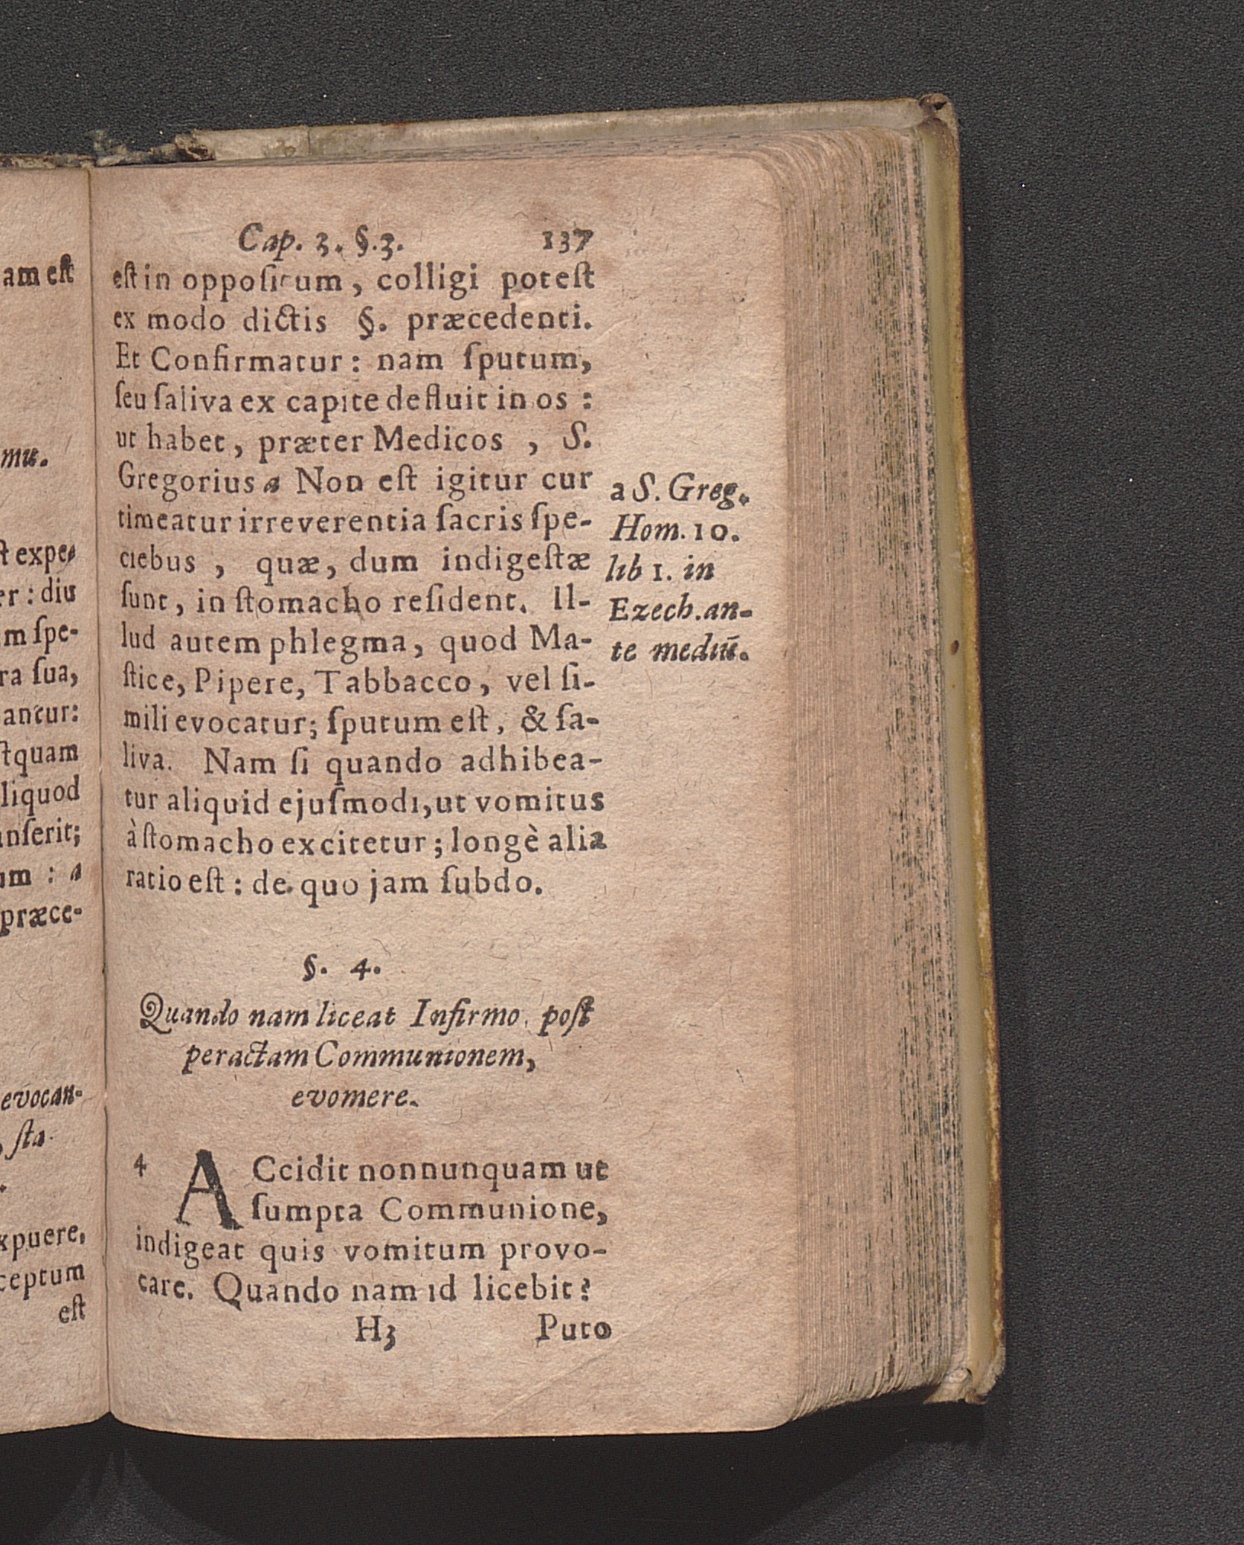 Cap. 3. §. 3. 137
est in oppositum, colligi potest
ex modo dictis §. præcedenti.
Et Confirmatur: nam sputum,
seu saliva ex capite defluit in os:
ut habet, præter Medicos, S.
Gregorius a Non est igitur cur
timeatur irreverentia sacris spe-
ciebus, quæ, dum indigestæ
sunt, in stomacho resident. Il-
lud autem phlegma, quod Ma-
stice, Pipere, Tabbacco, vel si-
mili evocatur; sputum est, & sa-
liva. Nam si quando adhibea-
tur aliquid ejusmodi, ut vomitus
à stomacho excitetur; longè alia
ratio est: de quo jam subdo.
a S. Greg.
Hom. 10.
lib 1. in
Ezech. an-
te mediū.
§. 4.
Quando nam liceat Infirmo, post
peractam Communionem,
evomere.
4 ACcidit nonnunquam ut
sumpta Communione,
indigeat quis vomitum provo-
care. Quando nam id licebit?
H3 Puto
am est
mu.
er: diu
m spe-
ra sua,
antur:
stquam
liquod
nserit;
um: a
præce-
evocan-
, sta-
xpuere,
ceptum
est